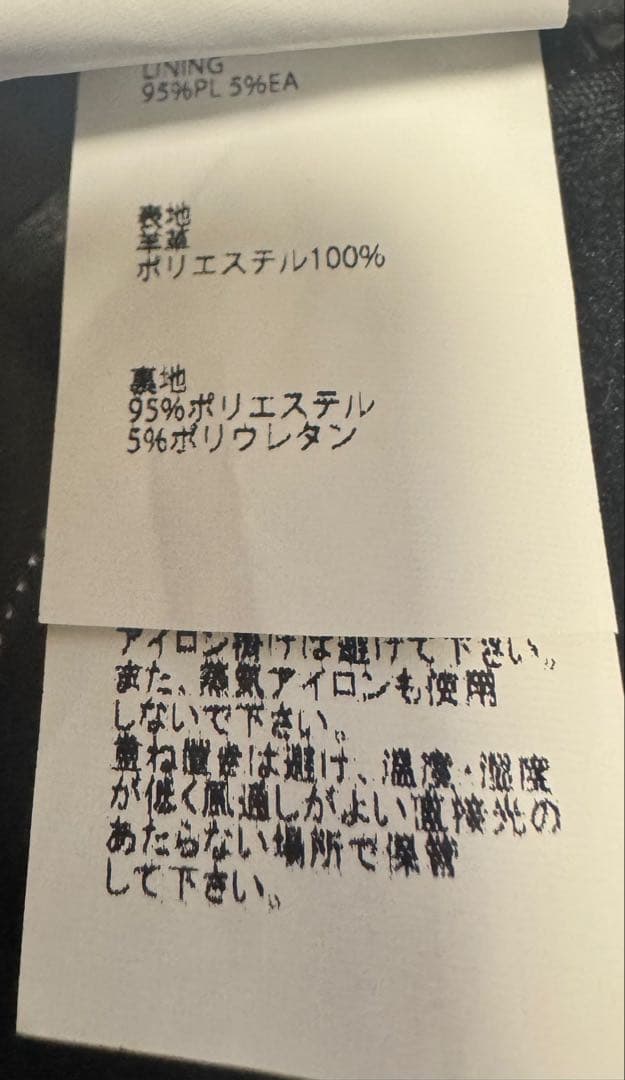 LINING
95%PL 5%EA
表地
羊革
ポリエステル100%
裏地
95%ポリエステル
5%ポリウレタン
アイロン掛けは避けて下さい。
また、蒸気アイロンも使用
しないで下さい。
重ね置きは避け、温度・湿度
が低く風通しがよい直接光の
あたらない場所で保管
して下さい。